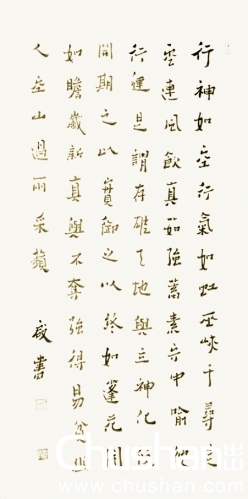 行神如空行氣如虹巫峽千尋走
雲連風飲真茹強蓄素守中喻彼
行健是謂存雄天地與立神化攸
同期之以實御之以終如逢花開
如瞻歲新真與不奪強得易貧幽
人空山過雨采蘋
書
Chushan
chushan.com